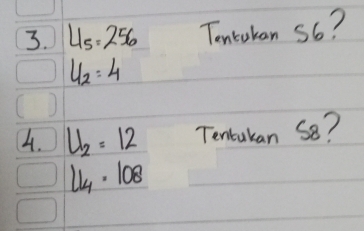 3. U5 = 256 Tentukan S6?
U2 = 4
4. U2 = 12 Tentukan S8?
U4 = 108